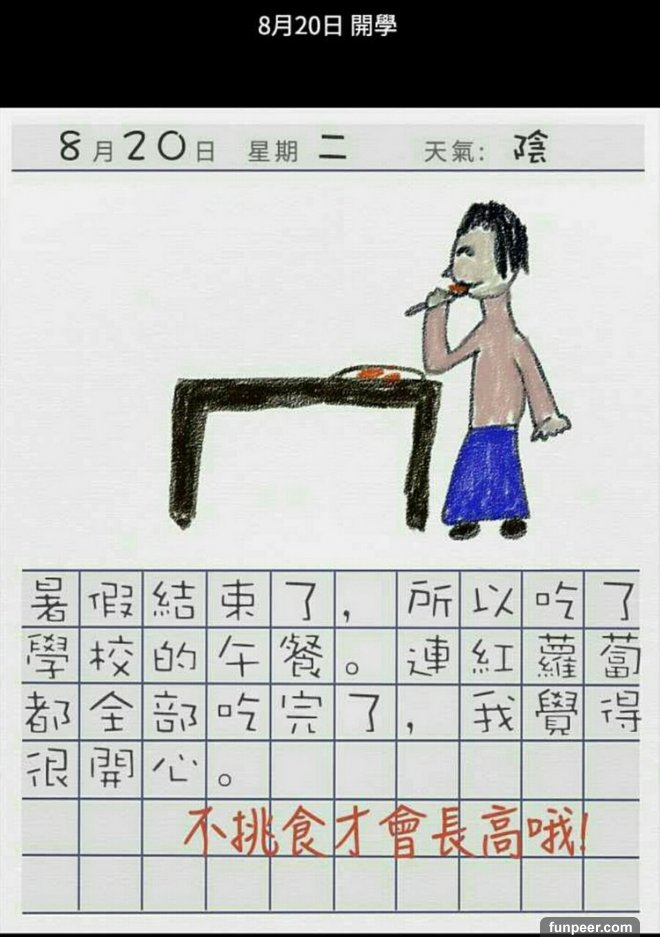 8月20日 開學
8月20日 星期二 天氣: 陰
暑假結束了，所以吃了
學校的午餐。連紅蘿蔔
都全部吃完了，我覺得
很開心。
不挑食才會長高哦!
funpeer.com